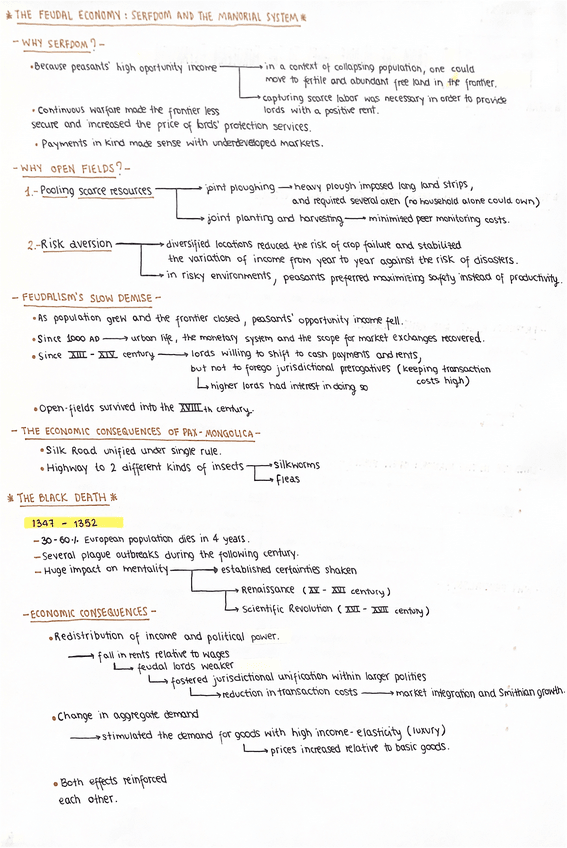 * THE FEUDAL ECONOMY: SERFDOM AND THE MANORIAL SYSTEM *
- WHY SERFDOM? -
• Because peasants' high oportunity income → in a context of collapsing population, one could
move to fertile and abundant free land in the frontier.
→ capturing scarce labor was necessary in order to provide
lords with a positive rent.
• Continuous warfare made the frontier less
secure and increased the price of lords' protection services.
• Payments in kind made sense with underdeveloped markets.
- WHY OPEN FIELDS? -
1.- Pooling scarce resources → joint ploughing → heavy plough imposed long land strips,
and required several oxen (no household alone could own)
→ joint planting and harvesting → minimised peer monitoring costs.
2.- Risk aversion → diversified locations reduced the risk of crop failure and stabilized
the variation of income from year to year against the risk of disasters.
→ in risky environments, peasants preferred maximizing safety instead of productivity.
- FEUDALISM'S SLOW DEMISE -
• As population grew and the frontier closed, peasants' opportunity income fell.
• Since 1000 AD → urban life, the monetary system and the scope for market exchanges recovered.
• Since XIII - XIV century → lords willing to shift to cash payments and rents,
but not to forego jurisdictional prerogatives (keeping transaction
costs high)
↳ higher lords had interest in doing so
• Open-fields survived into the XVIII th century.
- THE ECONOMIC CONSEQUENCES OF PAX-MONGOLICA -
• Silk Road unified under single rule.
• Highway to 2 different kinds of insects → silkworms
→ fleas
* THE BLACK DEATH *
1347 - 1352
- 30-60% European population dies in 4 years.
- Several plague outbreaks during the following century.
- Huge impact on mentality → established certainties shaken
→ Renaissance (XV - XVI century)
→ Scientific Revolution (XVI - XVII century)
- ECONOMIC CONSEQUENCES -
• Redistribution of income and political power.
→ fall in rents relative to wages
↳ feudal lords weaker
↳ fostered jurisdictional unification within larger polities
↳ reduction in transaction costs → market integration and Smithian growth.
• Change in aggregate demand
→ stimulated the demand for goods with high income-elasticity (luxury)
↳ prices increased relative to basic goods.
• Both effects reinforced
each other.